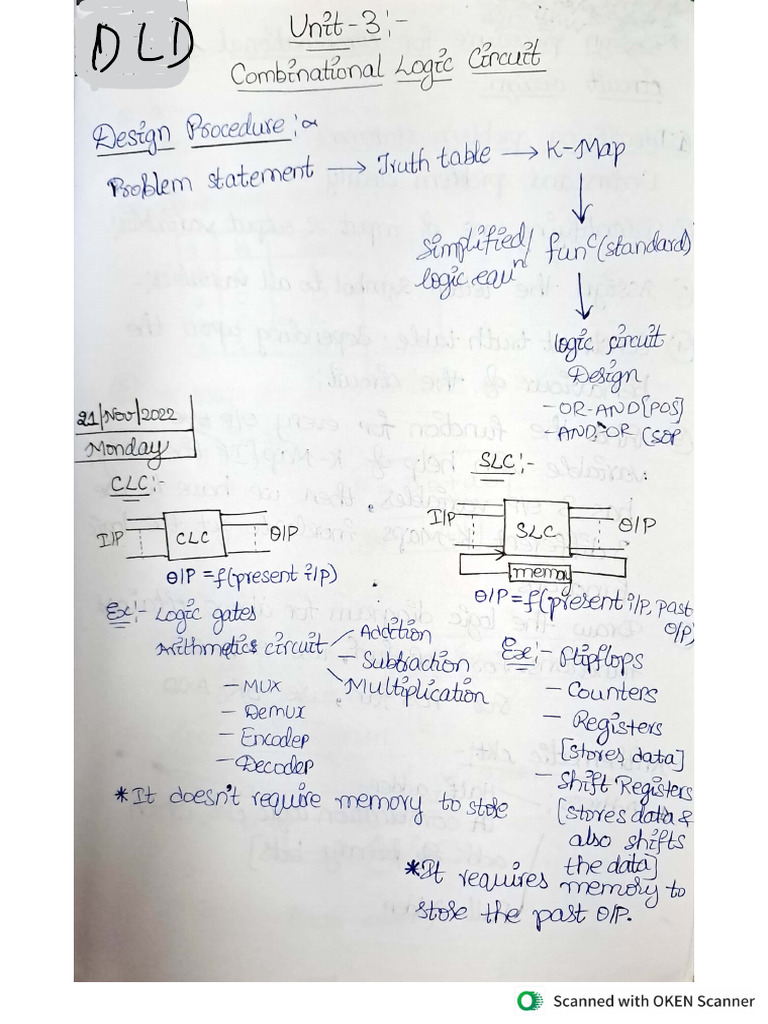 DLD
Unit-3:-
Combinational Logic Circuit
Design Procedure:-
Problem statement → Truth table → K-Map
Simplified/ funᶜ(standard)
logic equⁿ
logic circuit
Design
- OR-AND[POS]
- AND-OR (SOP
21/Nov/2022
Monday
CLC:-
I/P CLC O/P
O/P = f(present i/p)
Ex:- Logic gates
Arithmetics circuit - Addition
- Subtraction
- Multiplication
- MUX
- Demux
- Encoder
- Decoder
*It doesn't require memory to store
SLC:-
I/P SLC O/P
memory
O/P = f(present i/p, past
O/P)
Ex:- Flipflops
- Counters
- Registers
[stores data]
- Shift Registers
[stores data &
also shifts
the data]
*It requires memory to
store the past O/P.
Scanned with OKEN Scanner